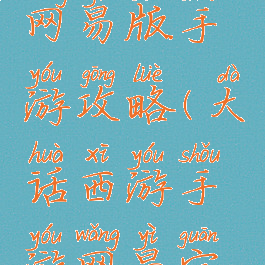 网易版手
yóu gōng lüè dà
游攻略(大
huà xī yóu shǒu
话西游手
yóu wǎng yì guān
游网易官